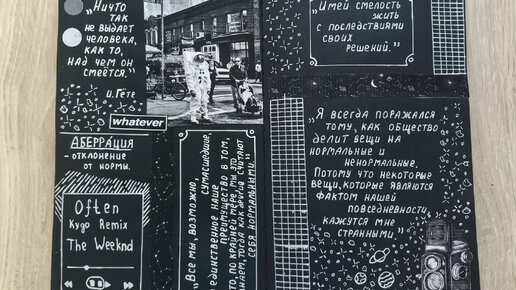 „Ничто
так
не выдает
человека,
как то,
над чем он
смеётся."
И. Гёте
whatever
АБЕРРАЦИЯ
- отклонение
от нормы.
Often
Kygo Remix
The Weeknd
„Все мы, возможно, сумасшедшие,
единственное наше
преимущество в том,
что, по крайней мере, мы это
знаем, тогда как другие считают
себя нормальными."
„Имей смелость
жить
с последствиями
своих
решений."
„Я всегда поражался
тому, как общество
делит вещи на
нормальные и
ненормальные.
Потому что некоторые
вещи, которые являются
фактом нашей
повседневности,
кажутся мне
странными."